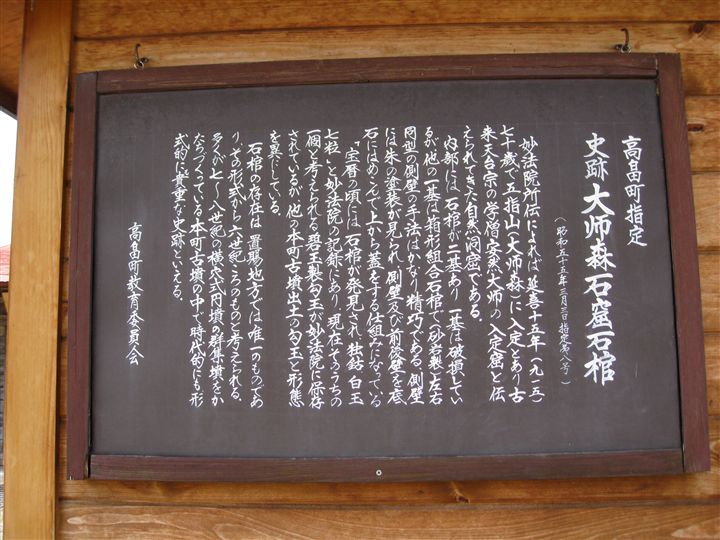 高畠町指定
史跡 大师森石窟石棺
(昭和五十五年三月三日指定第八号)
妙法院所伝によれば延喜十五年(九一五)
七十歳で五指山(大师森)に入定とあり古
来天台宗の学僧安然大师の入定窟と伝
えられてきた自然洞窟である。
内部には石棺が二基あり一基は破損してい
るが他の一基は箱形組合石棺で(砂岩製)左右
同型の側壁の手法はかなり精巧である。側壁
には朱の塗装が見られ側壁及び前後壁を底
石にはめこんで上から蓋をする仕組みになっている
「宝暦の頃には石棺が発見され、独鈷 白玉
七粒」と妙法院の記録にあり、現在そのうちの
一個と考えられる碧玉製勾玉が妙法院に保存
されているが、他の本町古墳出土の勾玉と形態
を異にしている。
石棺の存在は置賜地方では唯一のものであ
り、その形式から六世紀ころのものと考えられる。
多くが七~八世紀の横穴式円墳の群集墳をか
たちづくっている本町古墳の中で時代的にも形
式的に貴重な史跡といえる。
高畠町教育委員会